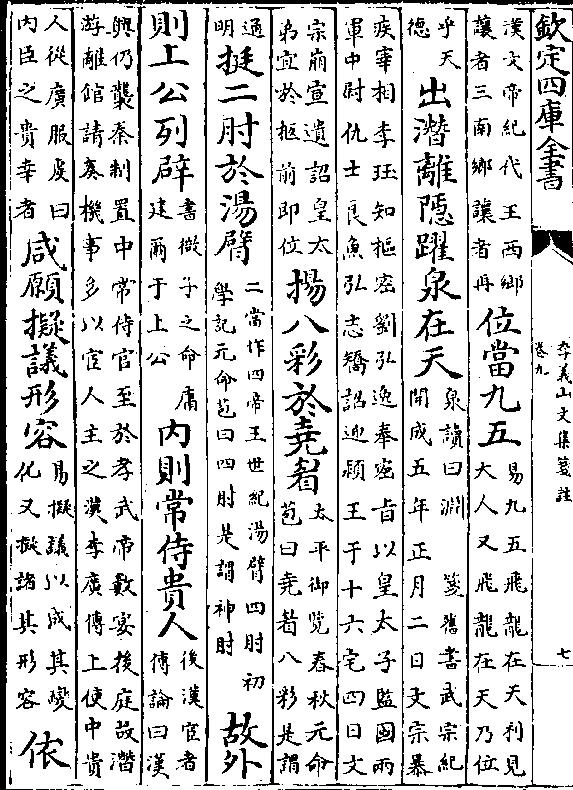 欽定四庫全書
李義山文集箋註
卷九
七
漢文帝紀代王西鄉
讓者三南鄉讓者再
位當九五
易九五飛龍在天利見
大人又飛龍在天乃位
乎天
德
出潛離隱躍泉在天
泉讀曰淵 箋舊書武宗紀
開成五年正月二日文宗暴
疾宰相李珏知樞密劉弘逸奉密旨以皇太子監國兩
軍中尉仇士良魚弘志矯詔迎潁王于十六宅四日文
宗崩宣遺詔皇太
弟宜於柩前即位
揚八彩於堯眉
太平御覽春秋元命
苞曰堯眉八彩是謂
通
明
挺二肘於湯臂
二當作四帝王世紀湯臂四肘 初
學記元命苞曰四肘是謂神肘
故外
則上公列辟
書微子之命庸
建爾于上公
內則常侍貴人
後漢宦者
傳論曰漢
興仍襲秦制置中常侍官至於孝武帝數宴後庭故潛
游離館請奏機事多以宦人主之漢李廣傳上使中貴
人從廣服虔曰
内臣之貴幸者
咸願擬議形容
易擬議以成其變
化又擬諸其形容
依